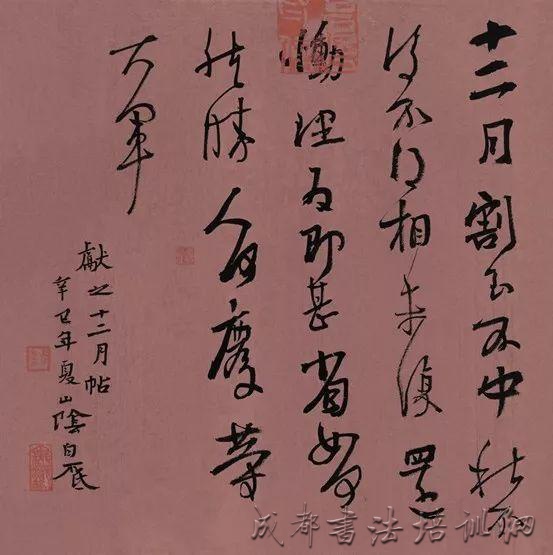 十二月割至不中秋不
復不得相未復還
慟理為即甚省如何
然勝人何慶等
大軍
獻之十二月帖
辛巳年夏山陰白砥
成都書法培训网